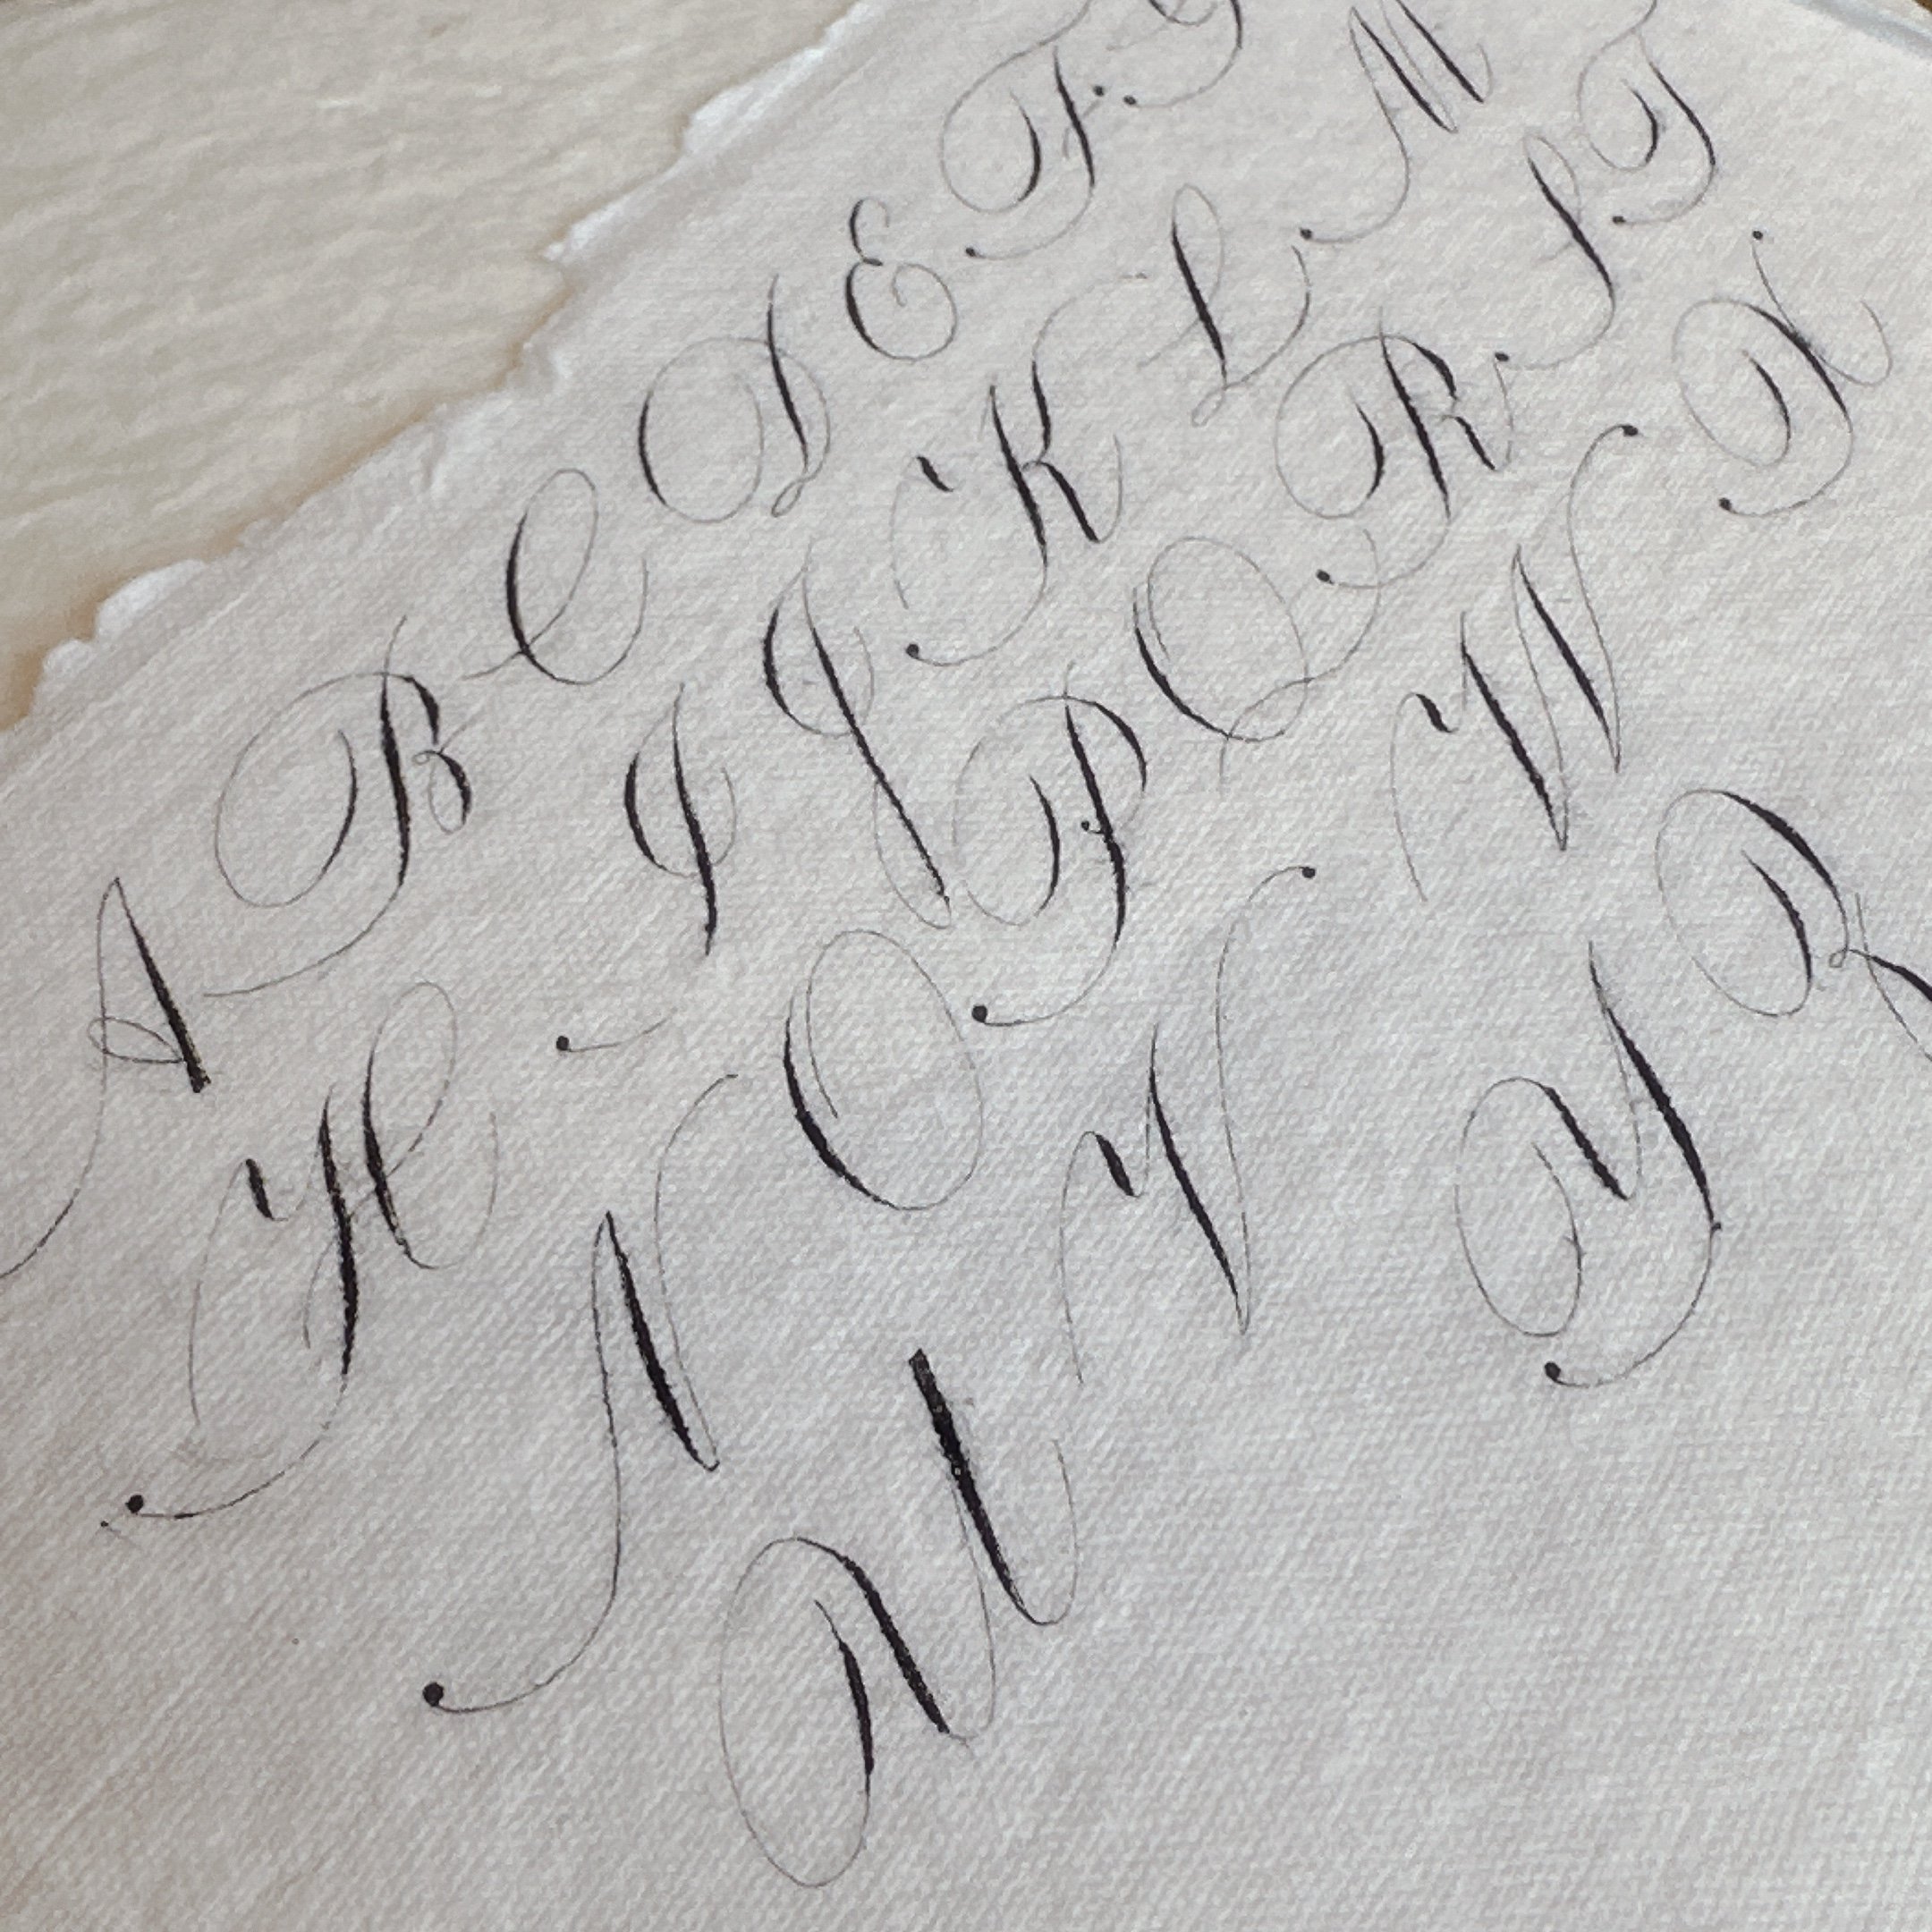 A B C D E F
H I J K L M
N O P Q R S T
U V W X
Y Z